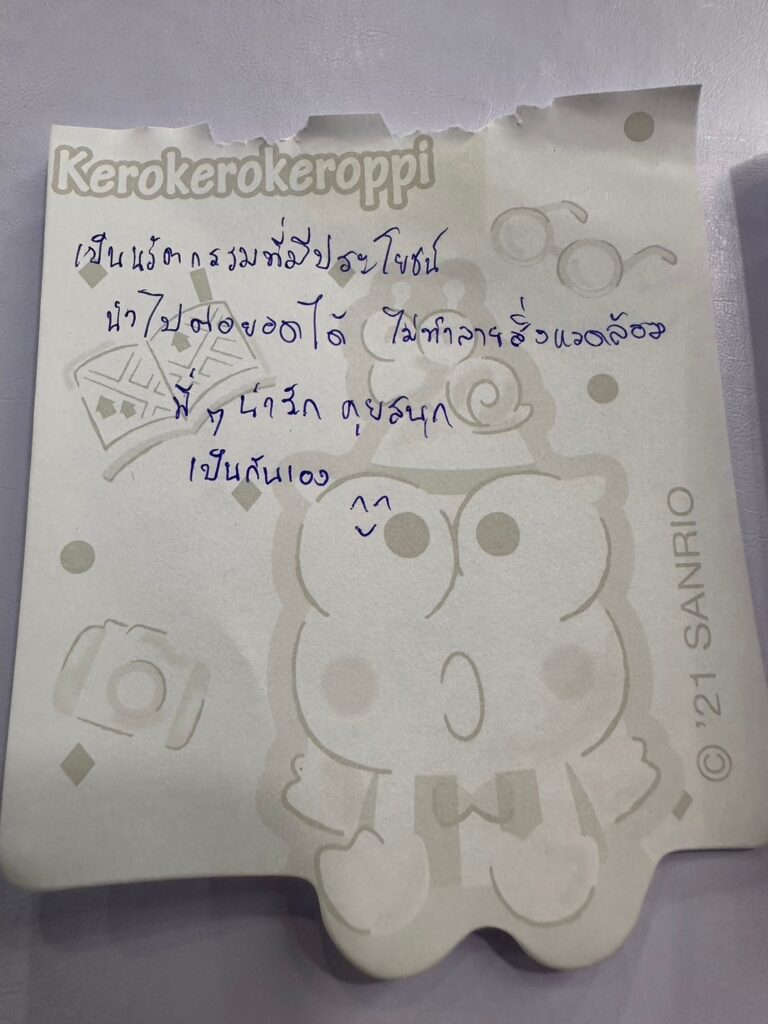 Kerokerokeroppi
เป็นนวัตกรรมที่มีประโยชน์
นำไปต่อยอดได้ ไม่ทำลายสิ่งแวดล้อม
พี่ๆ น่ารัก คุยสนุก
เป็นกันเอง
© '21 SANRIO